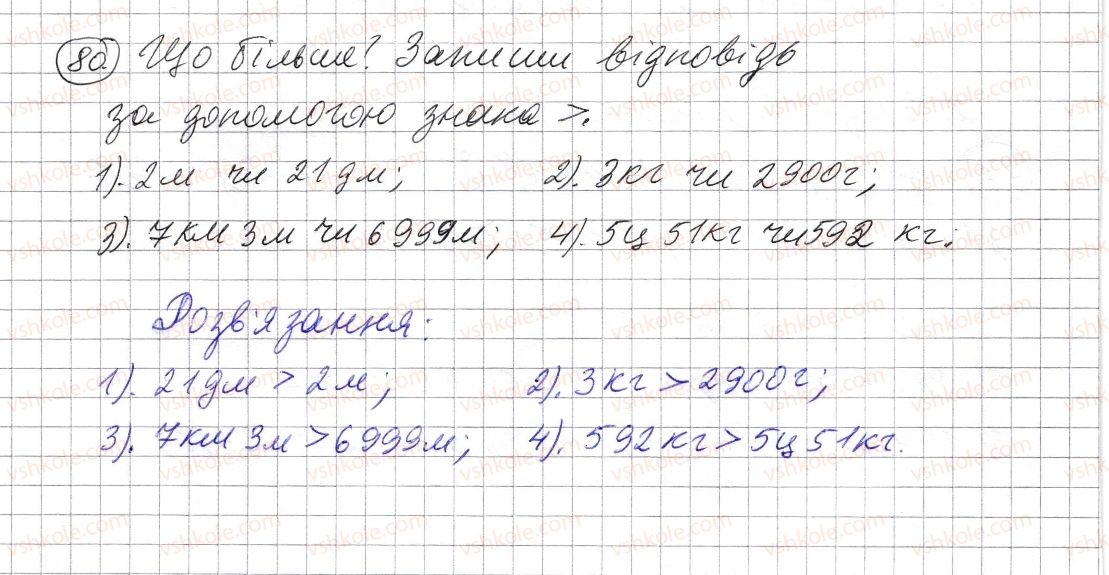 80. Що більше? Запиши відповідь
за допомогою знака >.
1). 2м чи 21дм; 2). 3кг чи 2900г;
3). 7км 3м чи 6999м; 4). 5ц 51кг чи 592 кг.
Розв'язання:
1). 21дм > 2м; 2). 3кг > 2900г;
3). 7км 3м > 6999м; 4). 592кг > 5ц 51кг.